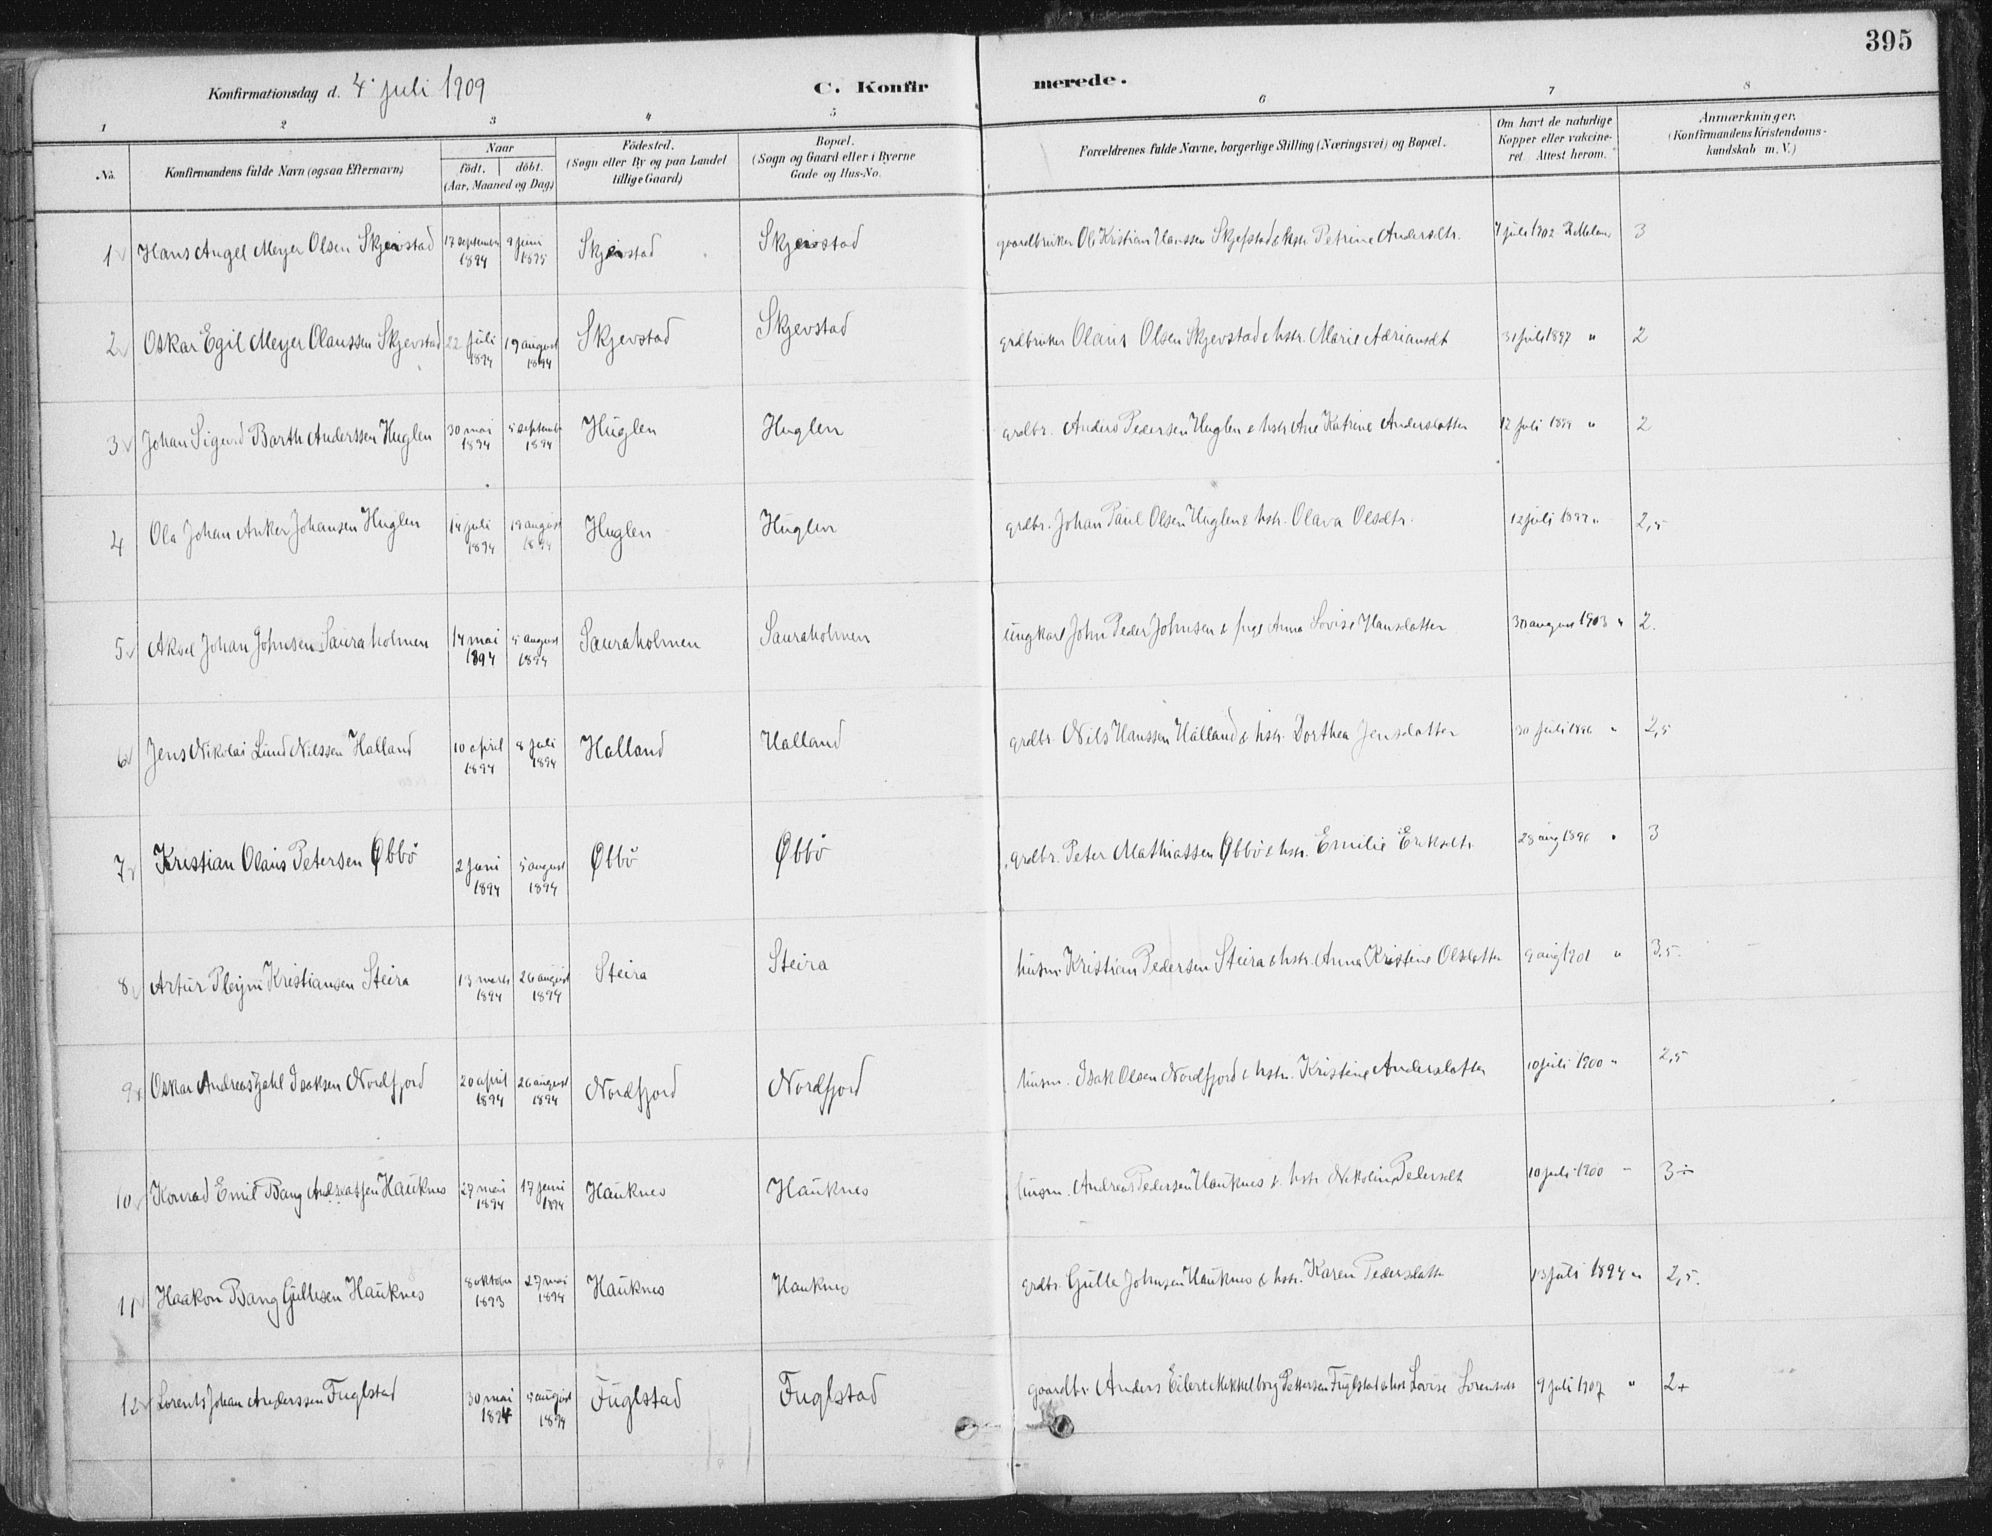 395
Konfirmationsdag d. 4. juli 1909
C. Konfirmerede.
1 2 3 4 5 6 7 8
No. Konfirmandens fulde Navn (ogsaa Efternavn) Naar født. døbt. (Aar, Maaned og Dag) Födested. (Sogn eller By og paa Landet tillige Gaard) Bopæl. (Sogn og Gaard eller i Byerne Gade og Hus-No. Forældrenes fulde Navne, borgerlige Stilling (Næringsvei) og Bopæl. Om havt de naturlige Kopper eller vakcineret. Attest herom. Anmærkninger. (Konfirmandens Kristendomskundskab m. V.)
1 Hans Angel Meyer Olsen Skjevstad 17 september 1894 9 juni 1895 Skjevstad Skjevstad gaardbruker Ole Kristian Hanssen Skjefstad & hstr. Petrine Andersdtr. 7 juli 1902 3
2 Oskar Egil Meyer Olaussen Skjevstad 22 juli 1894 19 august 1894 Skjevstad Skjevstad grdbruker Olaus Olsen Skjevstad & hstr. Marie Adriansdt 31 juli 1897 " 2
3 Johan Sigurd Barth Anderssen Huglen 30 mai 1894 5 septembr 1894 Huglen Huglen grdbr. Anders Pedersen Huglen & hstr Ane Katrine Andersdatter 12 juli 1899 " 2
4 Ola Johan Anker Johansen Huglen 14 juli 1894 19 august 1894 Huglen Huglen grdbr. Johan Paul Olsen Huglen & hstr. Olava Olsdtr. 12 juli 1899 " 2,5
5 Aksel Johan Johnsen Sauraholmen 14 mai 1894 5 august 1894 Sauraholmen Sauraholmen ungkarl John Peder Johnsen & pige Anna Lovise Hansdatter 30 august 1903 " 2.
6 Jens Nikolai Lund Nilssen Halland 10 april 1894 8 juli 1894 Halland Halland grdbr. Nils Hanssen Halland & hstr. Dorthea Jensdatter 30 juli 1896 " 2,5
7 Kristian Olaus Petersen Øbbø 2 juni 1894 5 august 1894 Øbbø Øbbø grdbr. Peter Mathiassen Øbbø & hstr. Emilie Eriksdtr 28 aug 1896 " 3
8 Artur Pleym Kristiansen Steira 13 mars 1894 26 august 1894 Steira Steira husm. Kristian Pedersen Steira & hstr. Anna Kristine Olsdatter 9 aug 1901 " 3,5
9 Oskar Andreas Zahl Isaksen Nordfjord 20 april 1894 26 august 1894 Nordfjord Nordfjord husm. Isak Olsen Nordfjord & hstr. Kristine Andersdatter 10 juli 1900 " 2,5
10 Konrad Emil Bang Andreassen Hauknes 27 mai 1894 17 juni 1894 Hauknes Hauknes husm. Andreas Pedersen Hauknes & hstr Nikoline Pedersdt 10 juli 1900 " 3÷
11 Haakon Bang Gullesen Hauknes 8 oktober 1893 27 mai 1894 Hauknes Hauknes grdbr. Gulle Johnsen Hauknes & hstr. Karen Pedersdatter 13 juli 1894 " 2,5.
12 Lorents Johan Anderssen Fuglstad 30 mai 1894 5 august 1894 Fuglstad Fuglstad gaardbr. Anders Eilert Mikkelborg Pettersen Fuglstad & hstr Lovise Lorentsdt 9 juli 1907 " 2+